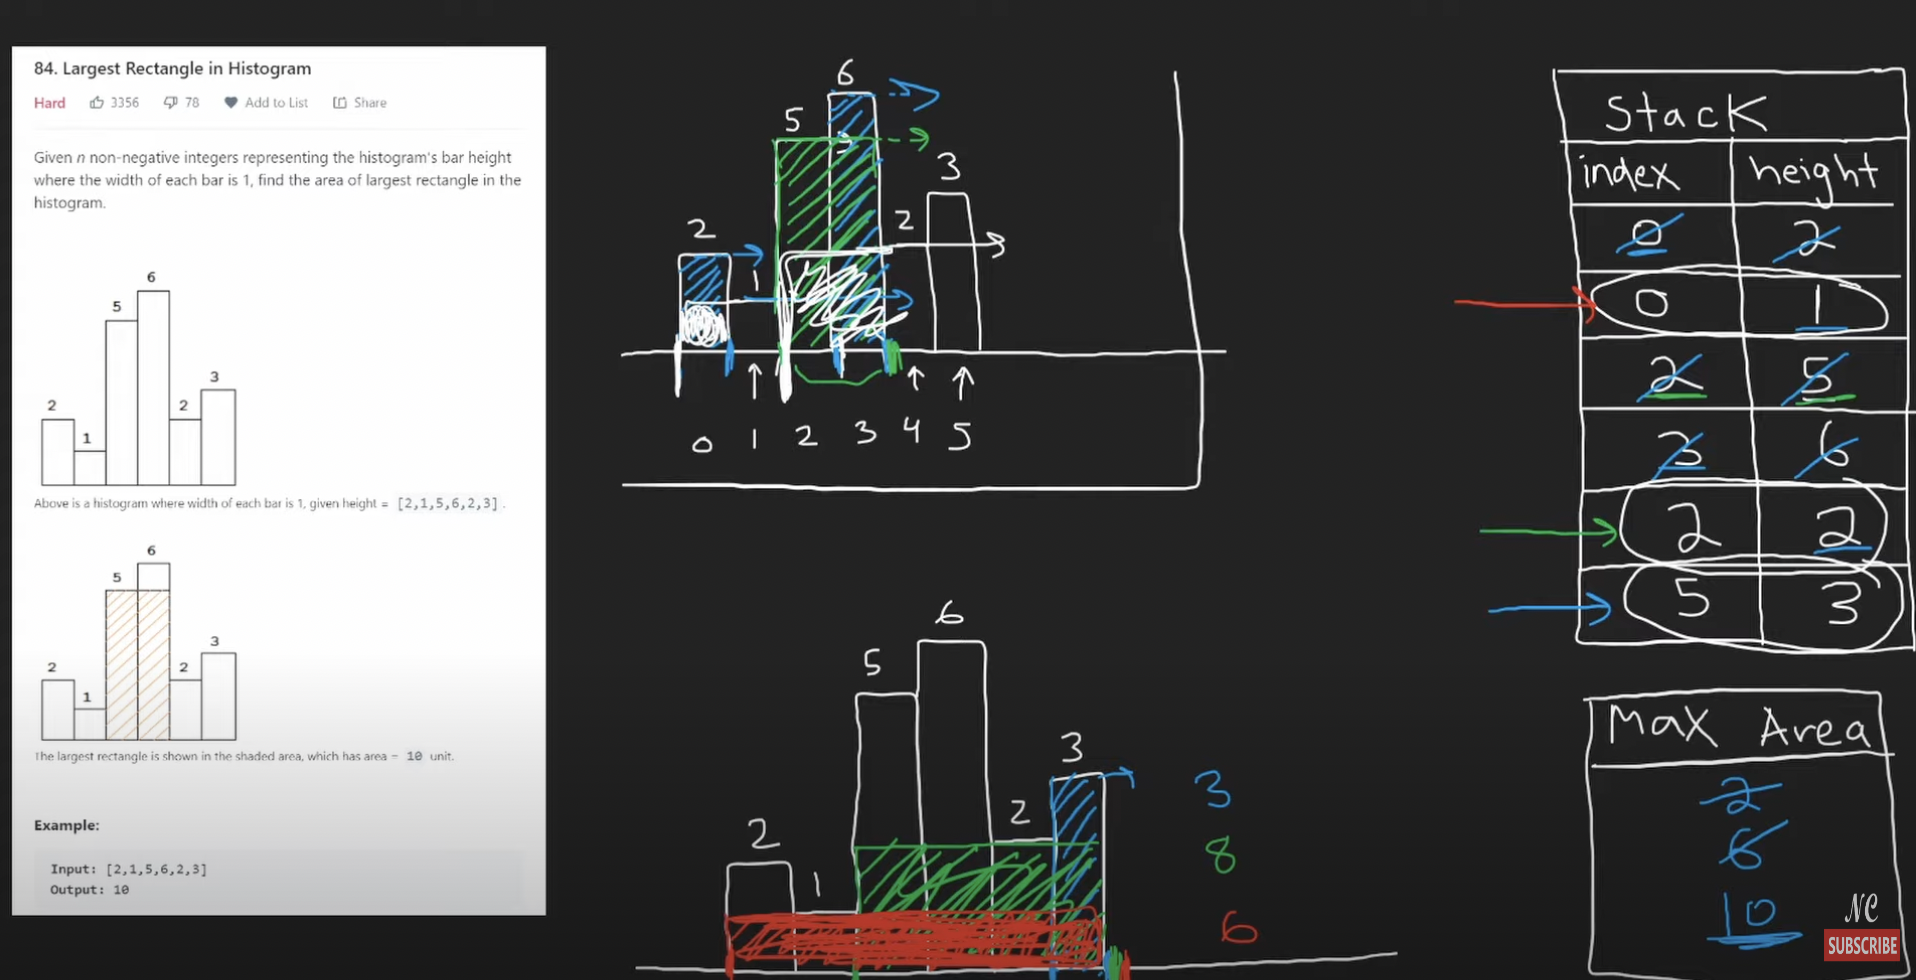 84. Largest Rectangle in Histogram
Hard 3356 78 Add to List Share
Given n non-negative integers representing the histogram's bar height
where the width of each bar is 1, find the area of largest rectangle in the
histogram.
6
5
3
2
2
1
Above is a histogram where width of each bar is 1, given height = [2,1,5,6,2,3].
6
5
3
2
2
1
The largest rectangle is shown in the shaded area, which has area = 10 unit.
Example:
Input: [2,1,5,6,2,3]
Output: 10
6
5
3
2
2
1
0 1 2 3 4 5
6
5
3
2
2
1
3
8
6
Stack
index height
0 2
0 1
2 5
3 6
2 2
5 3
Max Area
2
6
10
NC
SUBSCRIBE